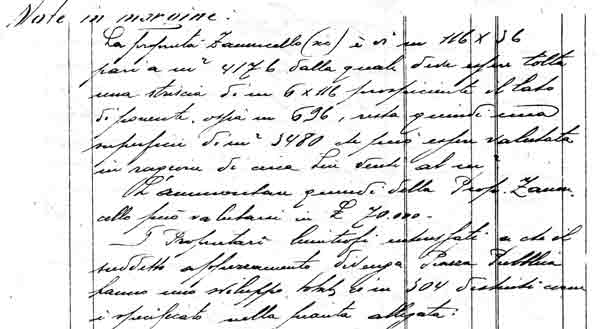 Note in margine:
La proprietà Zannicello (sic) è di m 116 x 36
pari a m² 4176 dalla quale deve essere tolta
una striscia di m 6 x 116 prospiciente il lato
di ponente, ossia m 696, resta quindi una
superficie di m² 3480 che può essere valutata
in ragione di circa Lire venti al m²
L'ammontare quindi della Prop. Zanni-
cello può valutarsi in £ 70.000.-
I Proprietari limitrofi interessati a che il
suddetto appezzamento divenga Piazza Pubblica
hanno uno sviluppo di m 304 distinti come
è specificato nella pianta allegata: